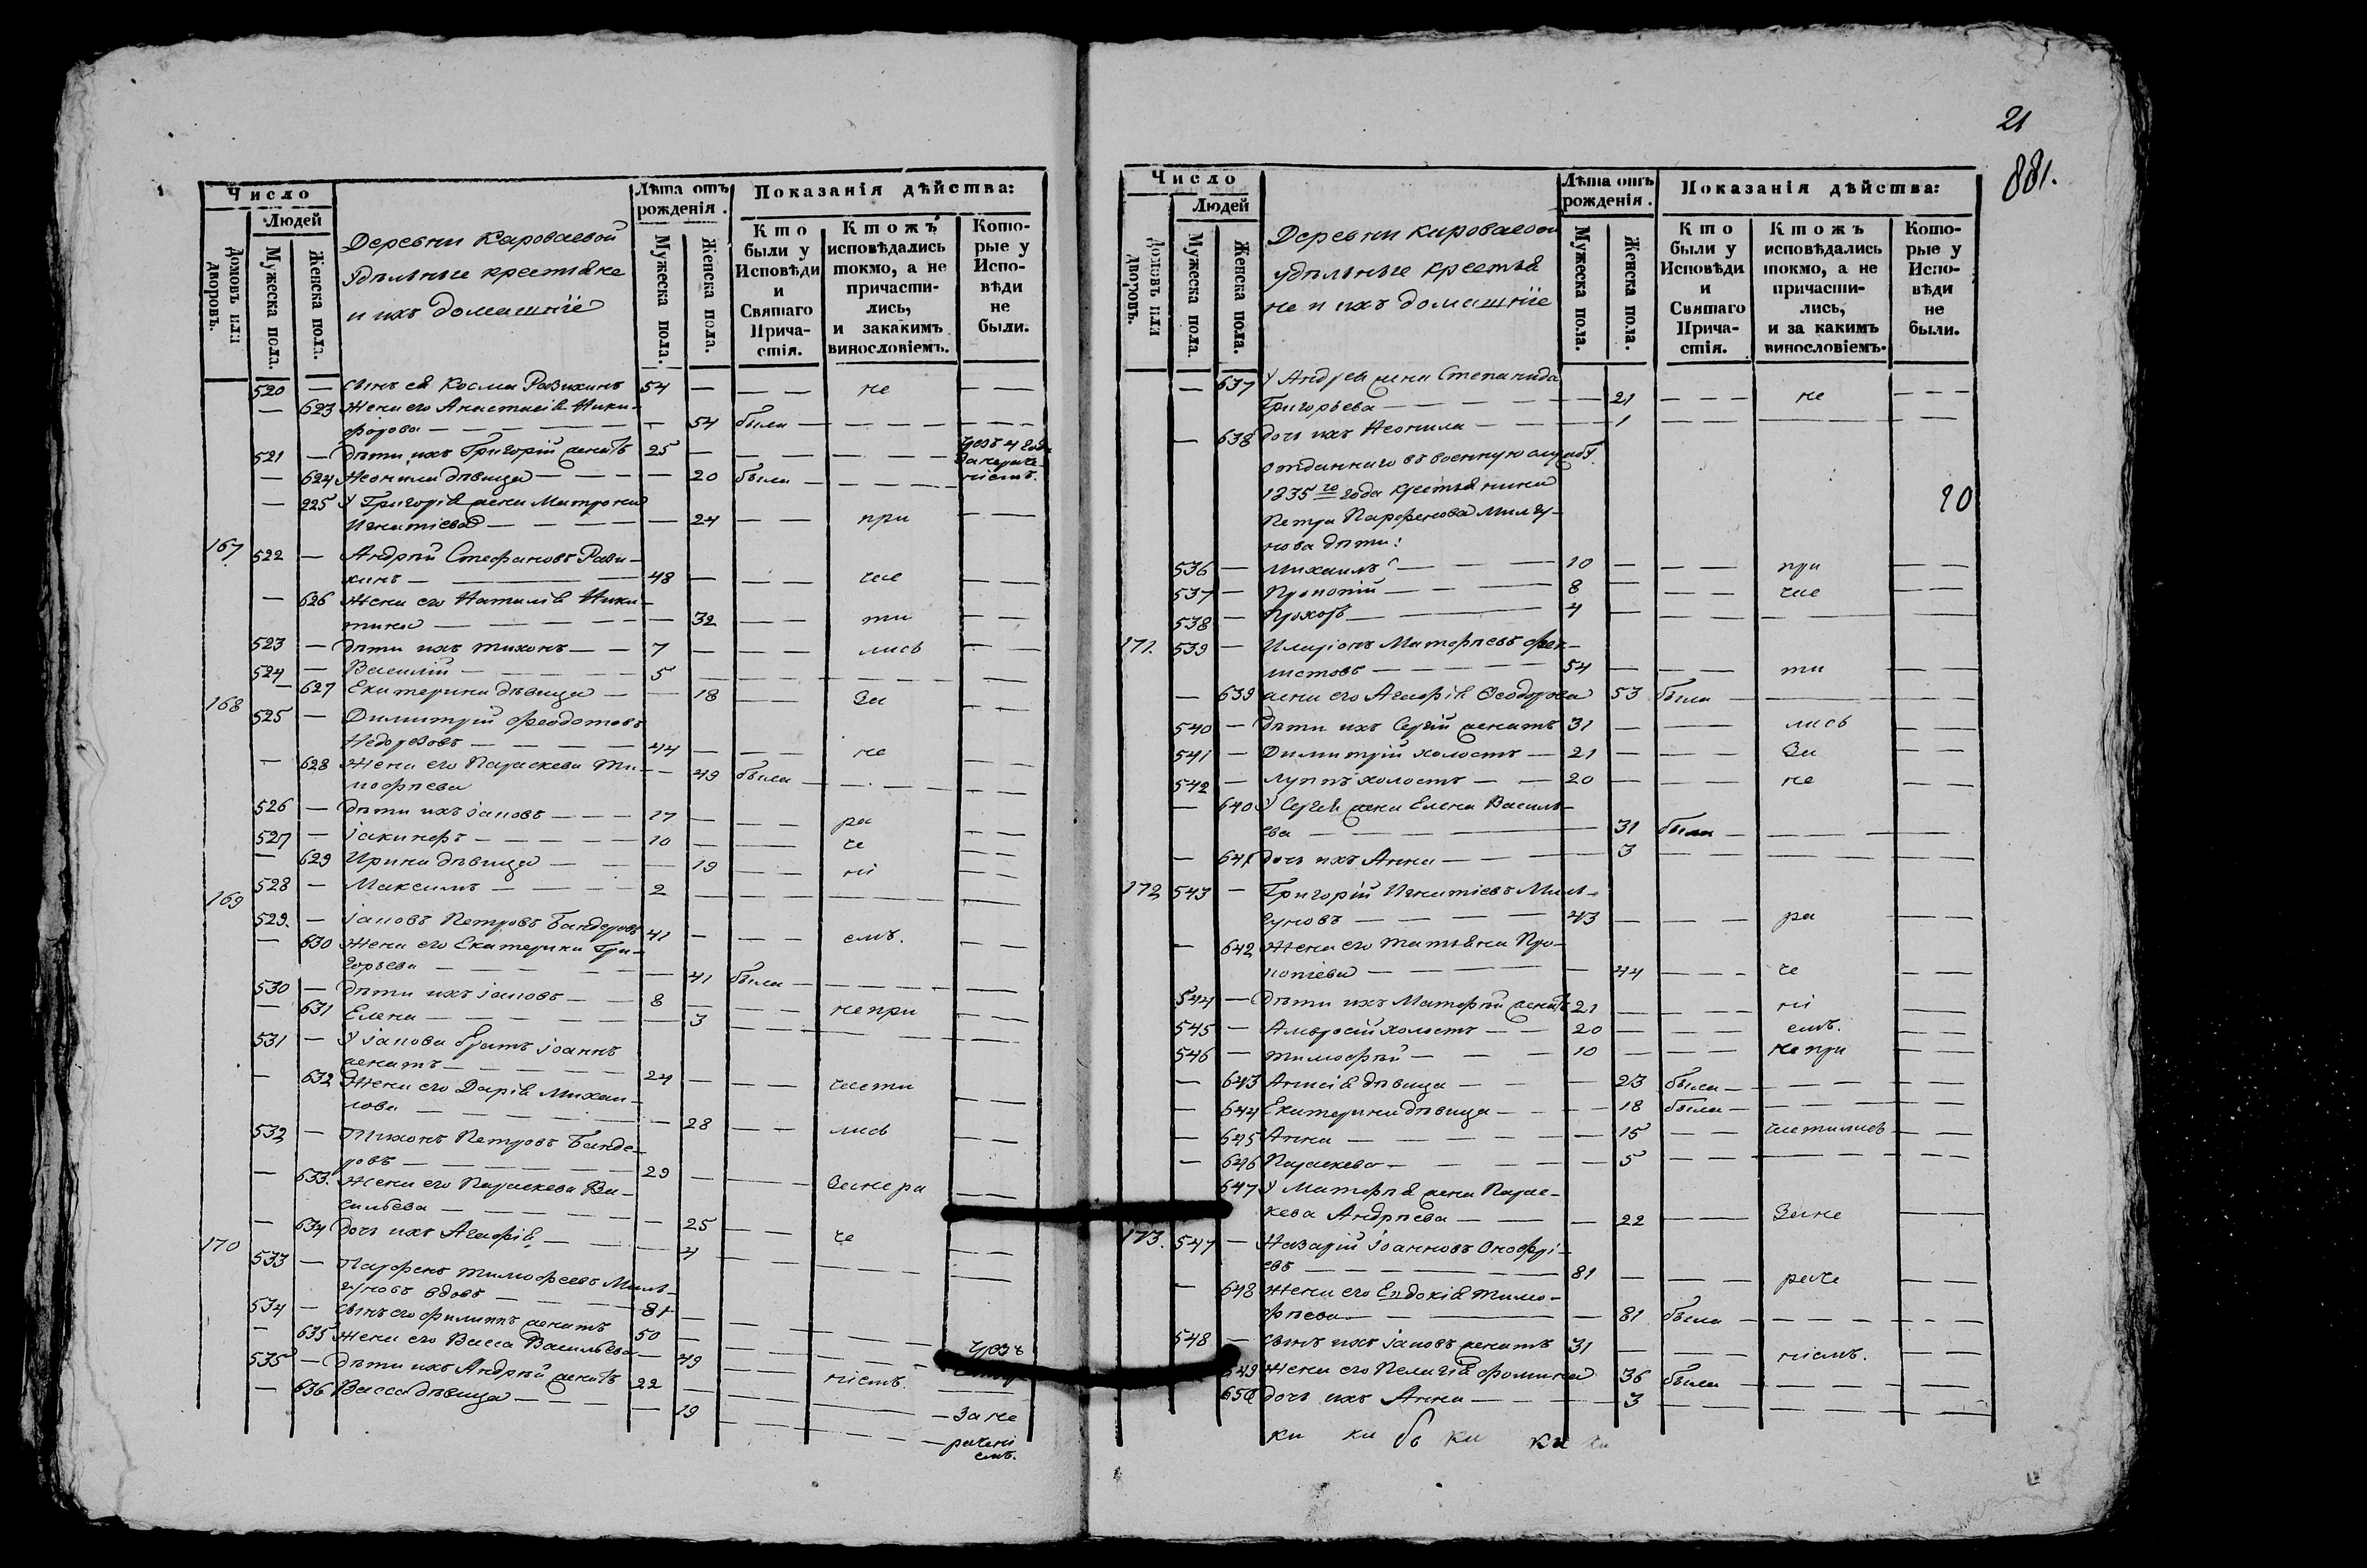 Число
Людей
Домовъ или дворовъ.
Мужеска пола.
Женска пола.
Деревни Кароваевой
удѣльные крестьяне
и ихъ домашніе
Лѣта отъ рожденія.
Мужеска пола.
Женска пола.
Показанія дѣйства:
Кто были у Исповѣди и Святаго Причастія.
Ктожъ исповѣдались токмо, а не причастились, и закакимъ винословіемъ.
Которые у Исповѣди не были.
520 — сынъ ея Косма 54 — — — не — —
— 623 Жена его Анастасія Ники-
форова — — 54 была — —
521 — дѣти ихъ Григорій женатъ 25 — — —
— 624 Неонила дѣвица — — 20 была — —
— 225 У Григорія жена Матрона
Игнатіева — — 24 — — при — —
167. 522 — Андрей Стефановъ
48 — — — час — —
— 626 Жена его Наталія Ники-
тина — — 32 — — ти — —
523 — дѣти ихъ Тихонъ — — 7 — — — лись — —
524 — Василій — 5 — —
— 627 Екатерина дѣвица — — 18 — — За — —
168 525 — Димитрій Феодотовъ
Недорезовъ — 44 — — — не — —
— 628 Жена его Параскева Ти-
мофѣева — 49 была — —
526 — дѣти ихъ Іаковъ — — 17 — — — ра — —
527 — Іакинфъ — 10 — — — че — —
— 629 Ирина дѣвица — — 19 — — ні — —
528 — Максимъ — 2 — —
169 529. — Іаковъ Петровъ Бандеровъ 41 — — — емъ. — —
— 630 Жена его Екатерина Гри-
горьева — — 41 была — —
530 — дѣти ихъ Іаковъ — — 8 — — — непри — —
— 631 Елена — — 3 — —
531 — У Іакова братъ Іоаннъ
женатъ — 24 — — — части — —
— 632 Жена его Дарія Михаи-
лова — — 28 — — лись — —
532 — Тихонъ Петровъ Банде-
ровъ — 29 — — — Занера — —
— 633. Жена его Параскева Ва-
сильева — — 25 — — че — —
— 634 дочь ихъ Агафія — — 4 — —
170 533 — Парфенъ Тимофеевъ Миль-
гуновъ вдовъ — 81 — —
534 — сынъ его Филиппъ женатъ 50 — —
— 635 жена его Васса Васильева — 49 — — ніемъ.
535 — дѣти ихъ Андрей женатъ 22 — — За не
— 636 Васса дѣвица — — 19 — — рачені
емъ.
21
881.
Число
Людей
Домовъ или дворовъ.
Мужеска пола.
Женска пола.
Деревни Кароваевой
удѣльные крестья
не и ихъ домашніе
Лѣта отъ рожденія.
Мужеска пола.
Женска пола.
Показанія дѣйства:
Кто были у Исповѣди и Святаго Причастія.
Ктожъ исповѣдались токмо, а не причастились, и за какимъ винословіемъ.
Которые у Исповѣди не были.
— 637 У Андрея жена Степанида
Григорьева — — 21 — — — не — — —
— 638 дочь ихъ Неонила — — 1 — —
отданнаго въ военную службу
1835го года крестьянина
Петра Парфенова Мильгу-
нова дѣти:
20
536 — Михаилъ — 10 — — — при — —
537 — Прокопій — 8 — — — час — —
538 — Прохоръ — 4 — —
171. 539 — Иларіонъ Матфѣевъ
54 — — — ти — —
— 639 жена его Агафія Ѳеодорова 53 была — —
540 — дѣти ихъ Сергій женатъ 31 — — — лись — —
541 — Димитрій холостъ — 21 — — — За — —
542 — Луппъ холостъ — 20 — — — не — —
— 640 У Сергея жена Елена Василь-
ева — — 31 была — —
— 641 дочь ихъ Анна — — 3 — —
172 543 — Григорій Игнатіевъ Миль-
гуновъ — 43 — — — ра — —
— 642 Жена его Татьяна Про-
копіева — — 44 — — — че — —
544 — дѣти ихъ Матфѣй женатъ 21 — — — ні — —
545 — Амвросій холостъ — 20 — — — емъ. — —
546 — Тимофѣй — 10 — — — непри — —
— 643 Анисія дѣвица — — 23 была — —
— 644 Екатерина дѣвица — — 18 была — —
— 645 Анна — — 15 — — частились — —
— 646 Параскева — — 5 — —
647 У Матфѣя жена Парас-
кева Андрѣева — — 22 — — Зане — —
173. 547 — Назарій Іоанновъ Онофрі-
евъ — 81 — — — раче — —
— 648 Жена его Евдокія Тимо-
фѣева — — 81 была — —
548 — сынъ ихъ Іаковъ женатъ 31 — — — ніемъ. — —
649 Жена его Пелагія Фомина 36 была — —
650 дочь ихъ Анна — — 3 — —